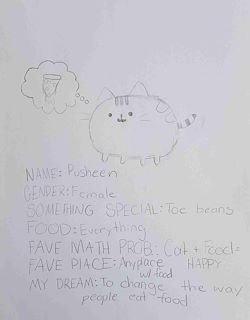 NAME: Pusheen
GENDER: Female
SOMETHING SPECIAL: Toe beans
FOOD: Everything
FAVE MATH PROB: Cat + Food =
FAVE PLACE: Anyplace HAPPY
w/ food
MY DREAM: To change the way
people eat food